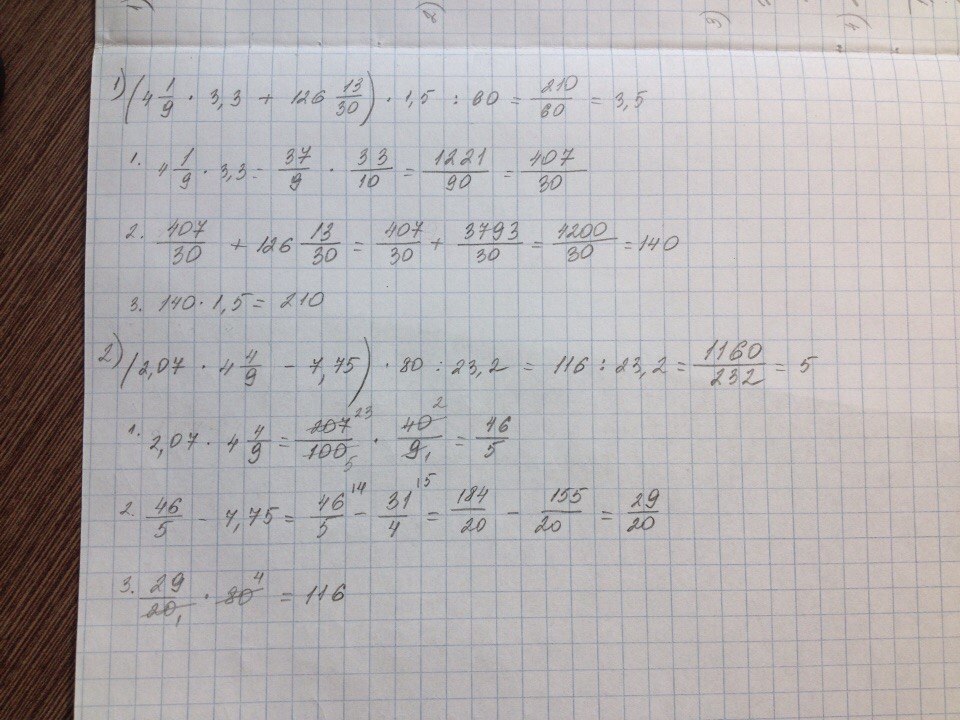 1) 2) 3) 4)
1) (4 1/9 · 3,3 + 126 13/30) · 1,5 : 60 = 210/60 = 3,5
1. 4 1/9 · 3,3 = 37/9 · 33/10 = 1221/90 = 407/30
2. 407/30 + 126 13/30 = 407/30 + 3793/30 = 4200/30 = 140
3. 140 · 1,5 = 210
2) (2,07 · 4 4/9 - 7,75) · 80 : 23,2 = 116 : 23,2 = 1160/232 = 5
1. 2,07 · 4 4/9 = 207 23/100 5 · 40 2/9 1 = 46/5
2. 46/5 - 7,75 = 46 14/5 - 31 15/4 = 184/20 - 155/20 = 29/20
3. 29/20 1 · 80 4 = 116